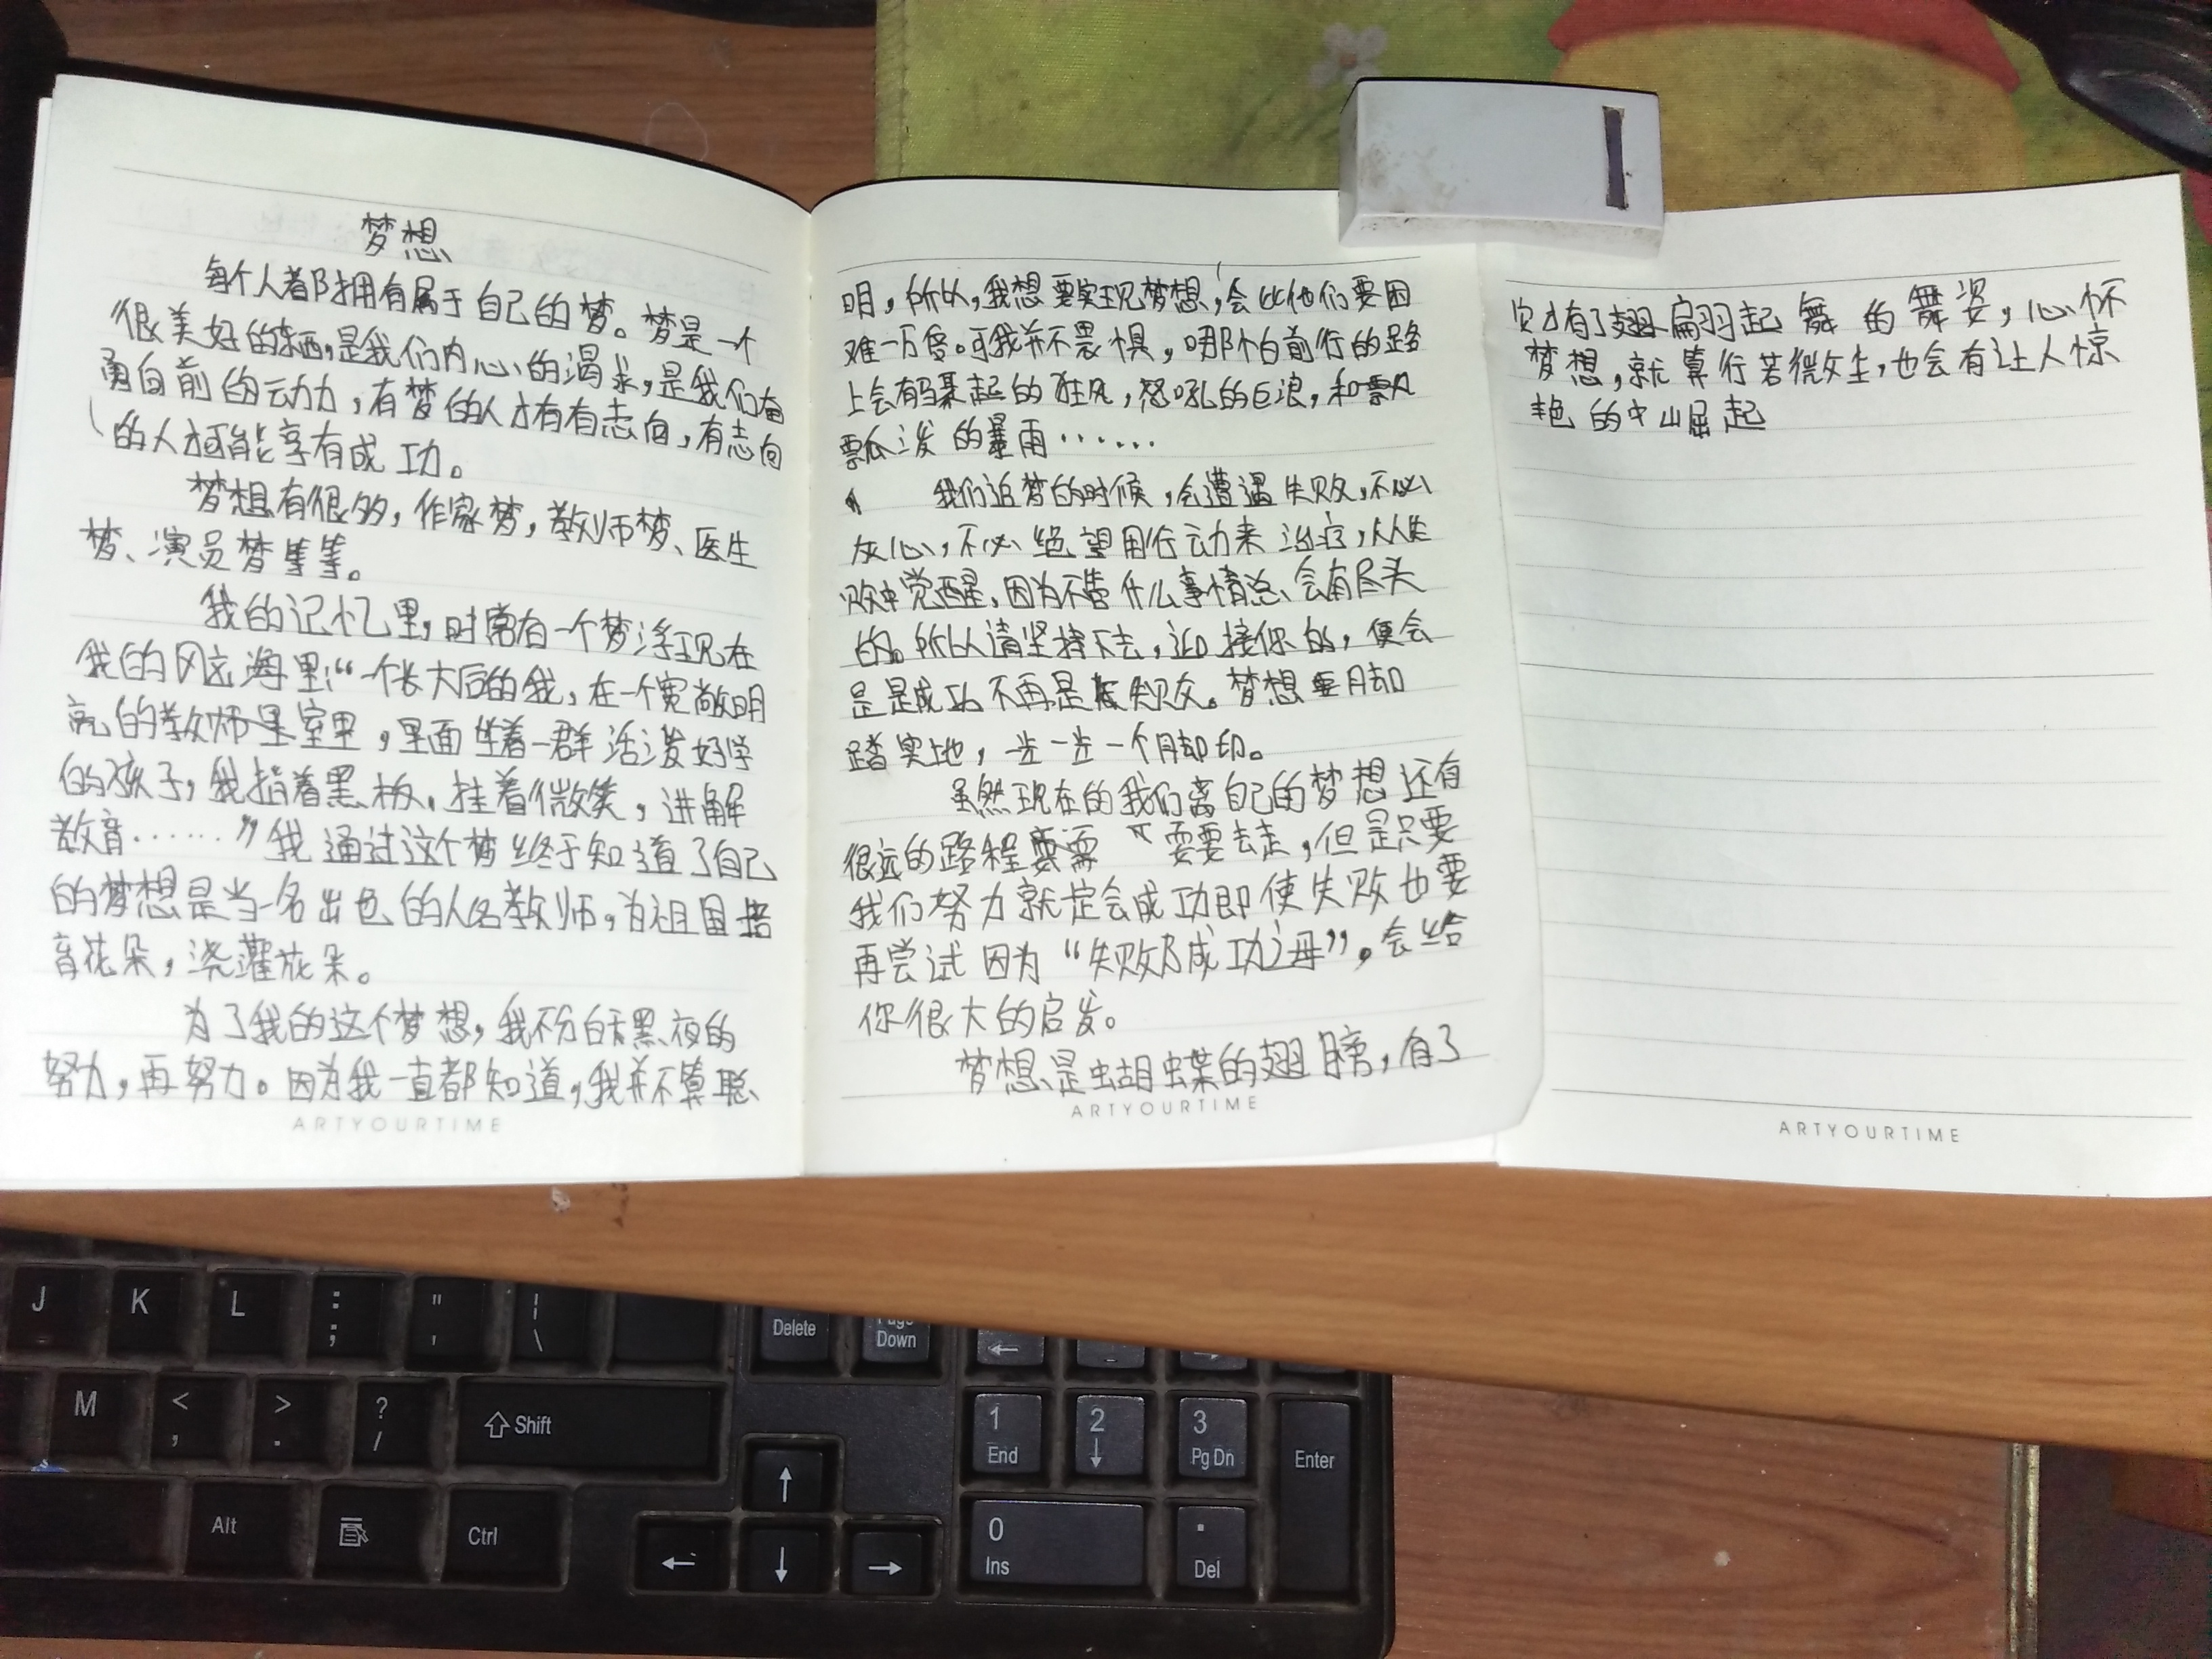 梦想
每个人都拥有属于自己的梦。梦是一个
很美好的东西,是我们内心的渴求,是我们奋
勇向前的动力,有梦的人才有有志向,有志向
的人才可能享有成功。
梦想有很多,作家梦,教师梦、医生
梦、演员梦等等。
我的记忆里,时常有一个梦浮现在
我的脑海里:“一个长大后的我,在一个宽敞明
亮的教师里室里,里面坐着一群活泼好学
的孩子,我指着黑板,挂着微笑,讲解
教育……”我通过这个梦终于知道了自己
的梦想是当一名出色的人名教师,为祖国培
育花朵,浇灌花朵。
为了我的这个梦想,我不分白天黑夜的
努力,再努力。因为我一直都知道,我并不算聪
ARTYOURTIME
明,所以,我想要实现梦想,会比他们要困
难一万倍。可我并不畏惧,哪怕前行的路
上会有暴起的狂风,怒吼的巨浪,和飘
瓢泼的暴雨……
我们追梦的时候,会遭遇失败,不必
灰心,不必绝望用行动来治疗,从失
败中觉醒,因为不管什么事情总会有尽头
的。所以请坚持下去,迎接你的,便会
是是成功不再是失败。梦想要脚
踏实地,一步一步一个脚印。
虽然现在的我们离自己的梦想还有
很远的路程要需 需要去走,但是只要
我们努力就定会成功即使失败也要
再尝试因为“失败乃成功之母”。会给
你很大的启发。
梦想是蝴蝶的翅膀,有了
ARTYOURTIME
只才有了翅扁羽起舞的舞姿,心怀
梦想,就算行若微生,也会有让人惊
艳的中山屈起
ARTYOURTIME
J
K
L
:
;
"
'
|
\
Delete
Page
Down
M
<
,
>
.
?
/
Shift
1
End
2
3
Pg Dn
Enter
Alt
Ctrl
0
Ins
.
Del